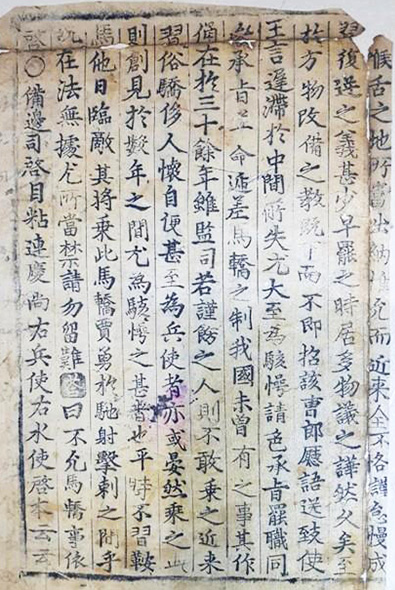 喉舌之地所當出納惟允而近来全不恪謹怠慢成
習復逆之義甚少早罷之時居多物議之譁然久矣至
於方物改備之教旣下而不即招該曹郎廳語送致使
王言遲滯於中間所失尤大至爲駭愕請色承旨罷職同
承旨並命遞差馬轎之制我國未曾有之事其作
俑在於三十餘年雖監司若謹飭之人則不敢乘之近来
習俗驕侈人懷自便甚至為兵使者亦或晏然乘之此
則創見於數年之間尤為駭愕之甚者也平時不習鞍
馬他日臨敵其將乘此馬轎賈勇於馳射擊刺之間乎
在法無據尤所當禁請勿留難 曰不允馬轎事依
啓○備邊司啓目粘連慶尚右兵使右水使啓本云云